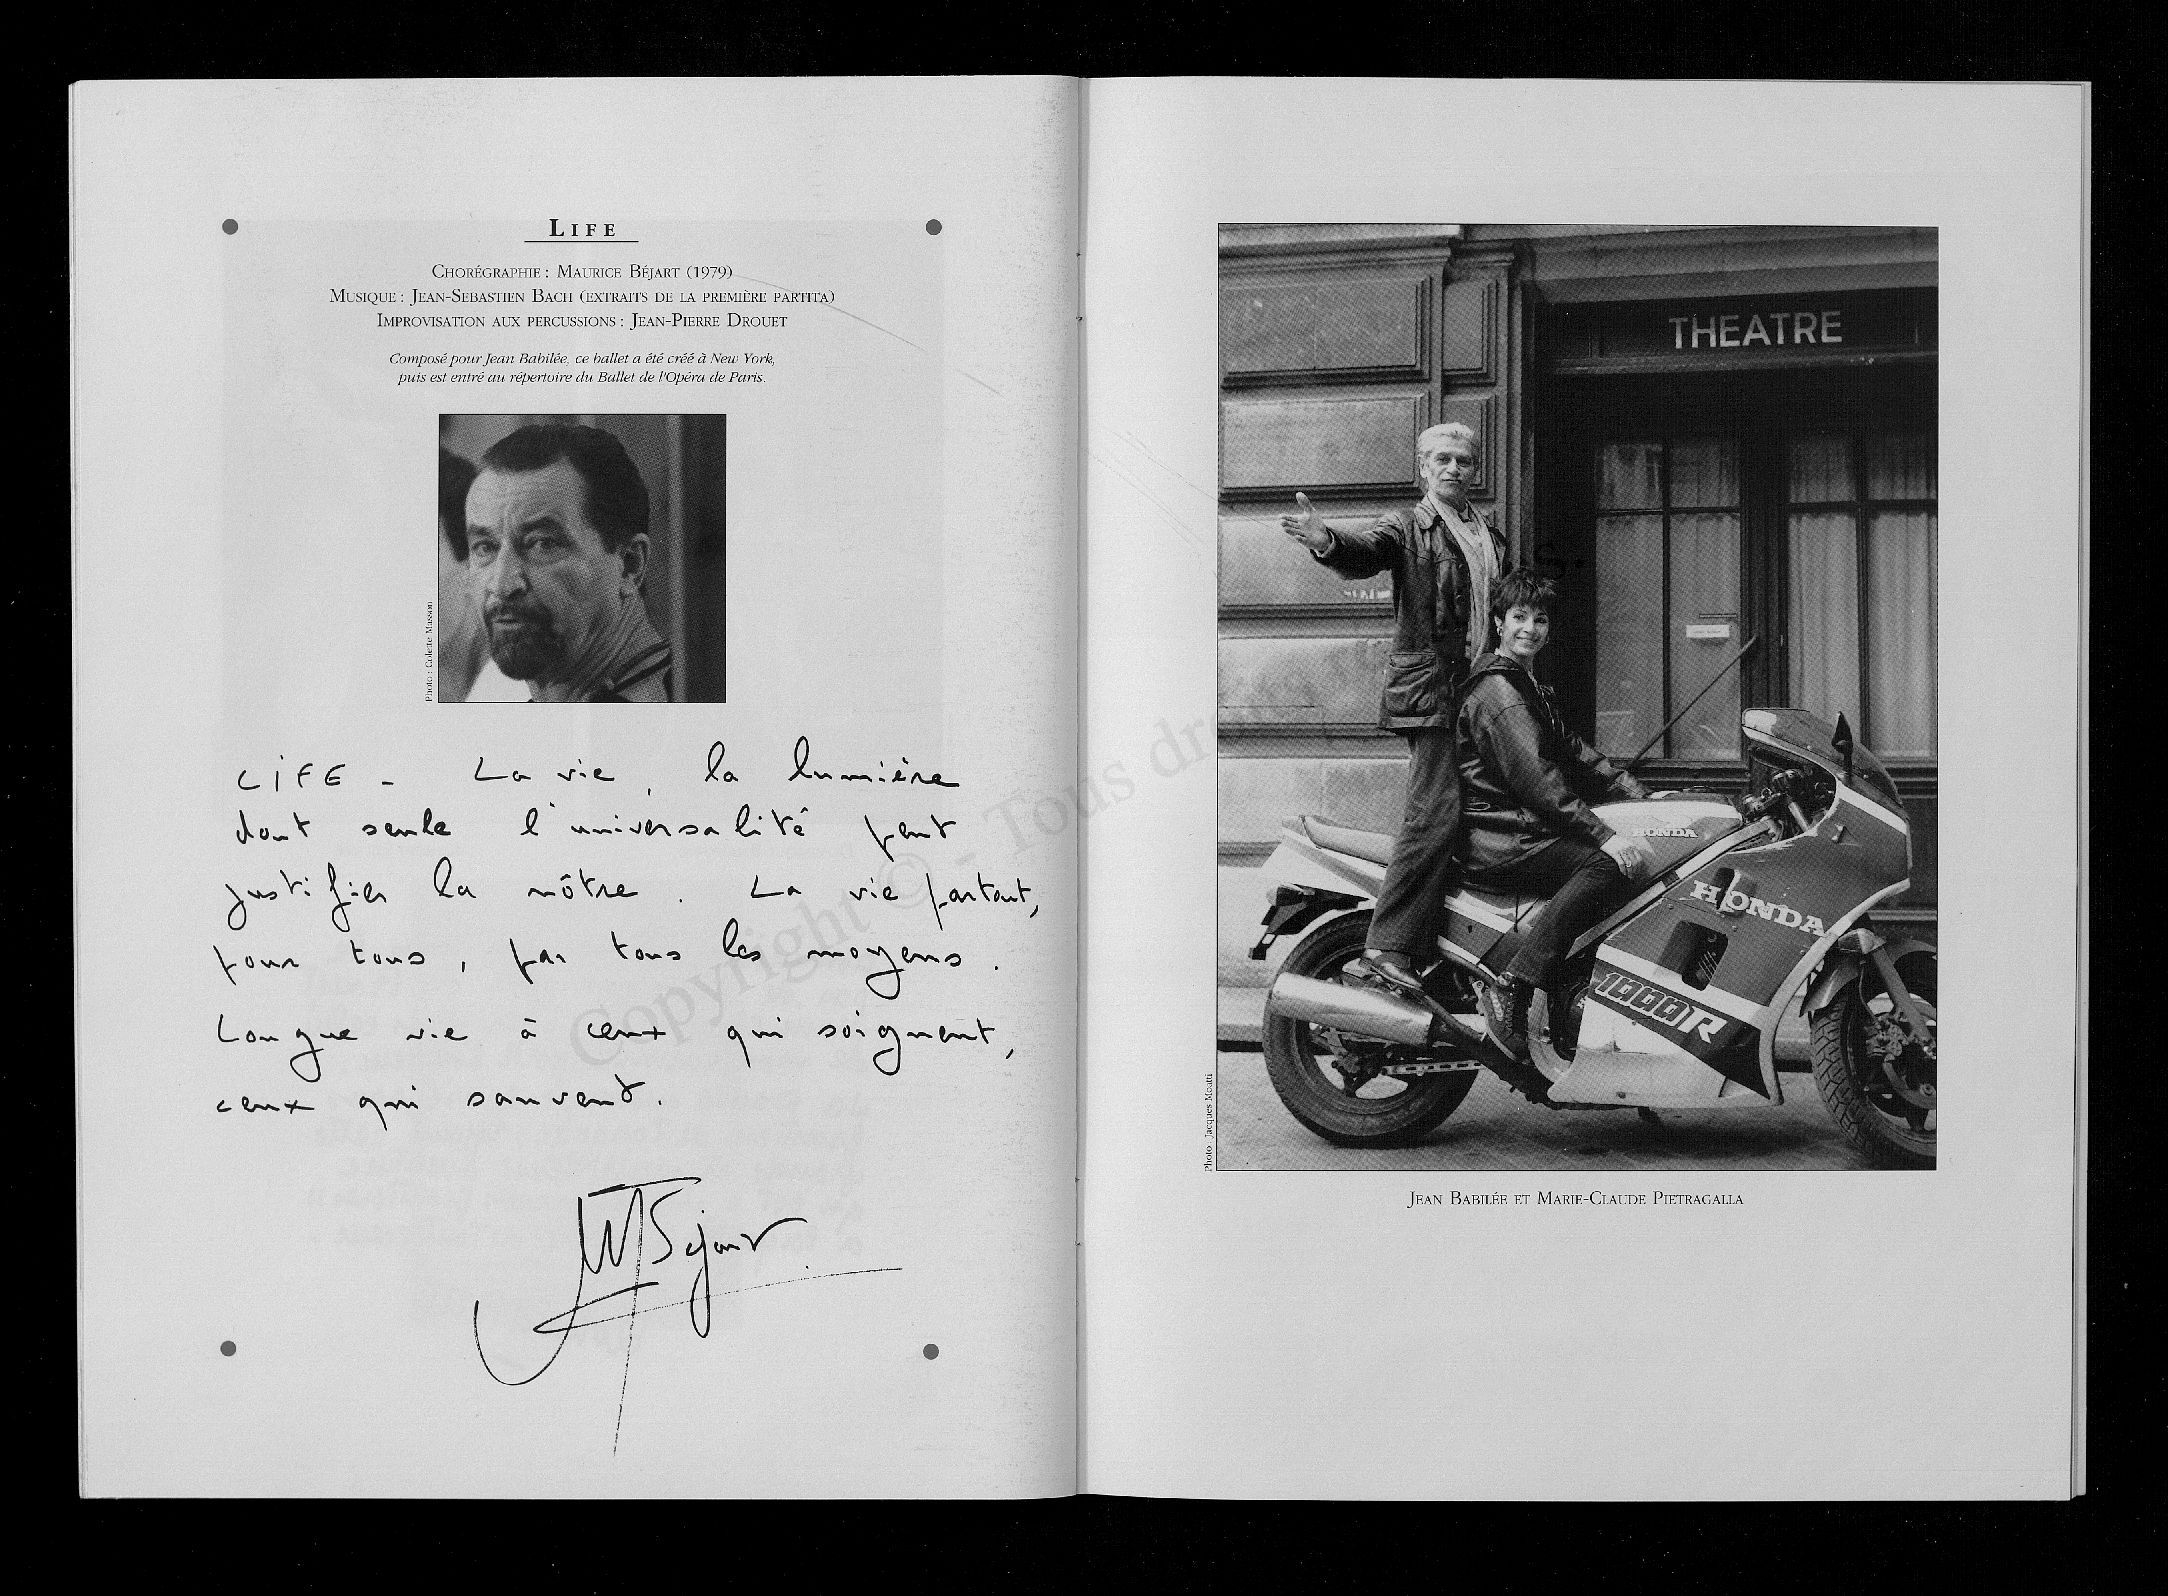 LIFE
CHORÉGRAPHIE : MAURICE BÉJART (1979)
MUSIQUE : JEAN-SEBASTIEN BACH (EXTRAITS DE LA PREMIÈRE PARTITA)
IMPROVISATION AUX PERCUSSIONS : JEAN-PIERRE DROUET
Composé pour Jean Babilée, ce ballet a été créé à New York,
puis est entré au répertoire du Ballet de l'Opéra de Paris.
Photo : Colette Masson
LIFE - La vie, la lumière
dont seule l'universalité peut
justifier la nôtre. La vie partout,
pour tous, par tous les moyens.
Longue vie à ceux qui soignent,
ceux qui sauvent.
MBéjart
Copyright © - Tous dro
THEATRE
HONDA
HONDA
1000R
Photo : Jacques Moatti
JEAN BABILÉE ET MARIE-CLAUDE PIETRAGALLA